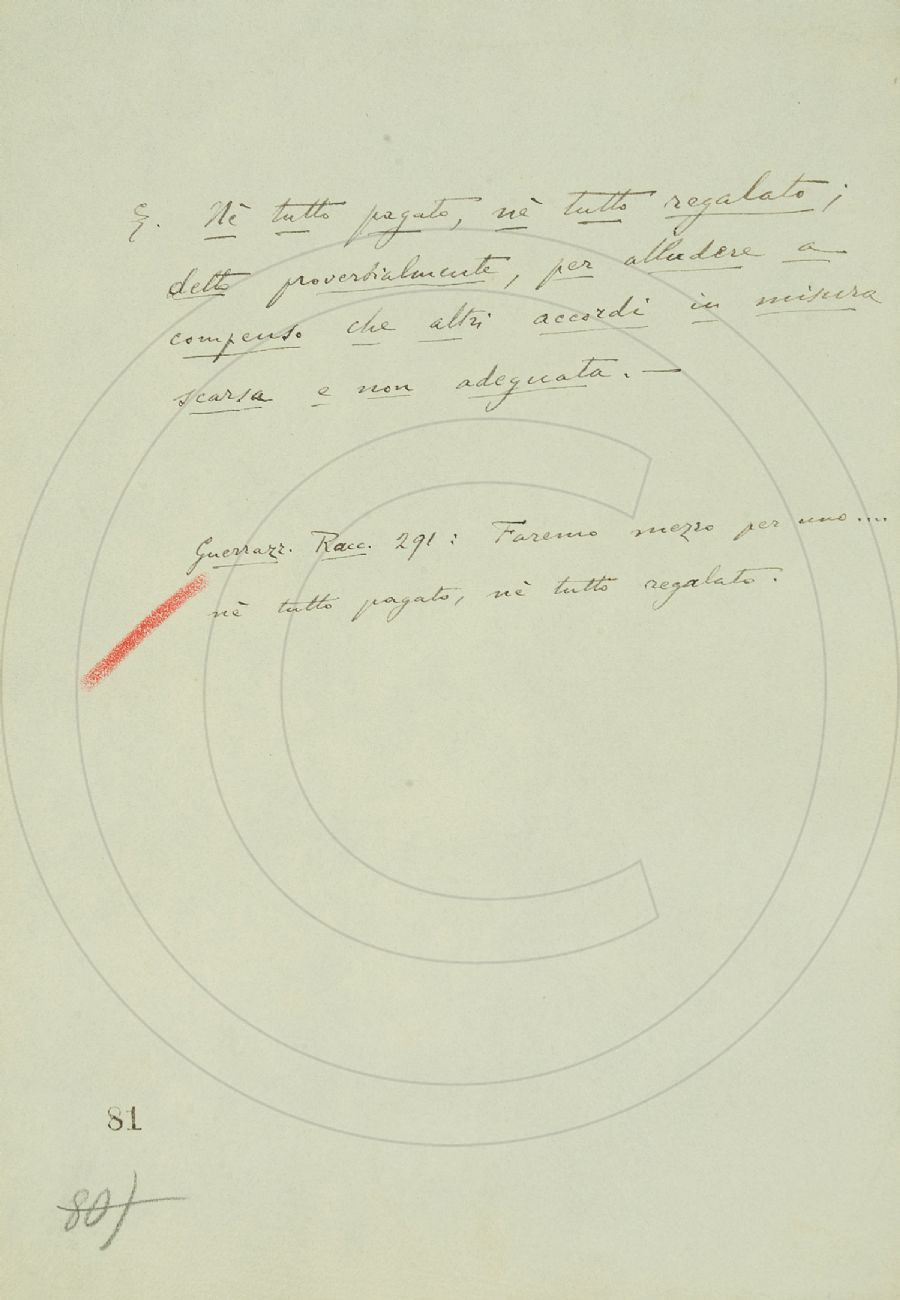 §. Nè tutto pagato, nè tutto regalato;
detto proverbialmente, per alludere a
compenso che altri accordi in misura
scarsa e non adeguata. —
Guerrazz. Racc. 291: Faremo mezzo per uno....
nè tutto pagato, nè tutto regalato.
81
80)